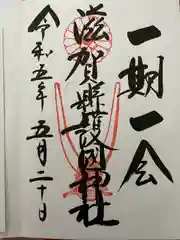 一期一会
滋賀縣護國神社
令和五年五月二十日